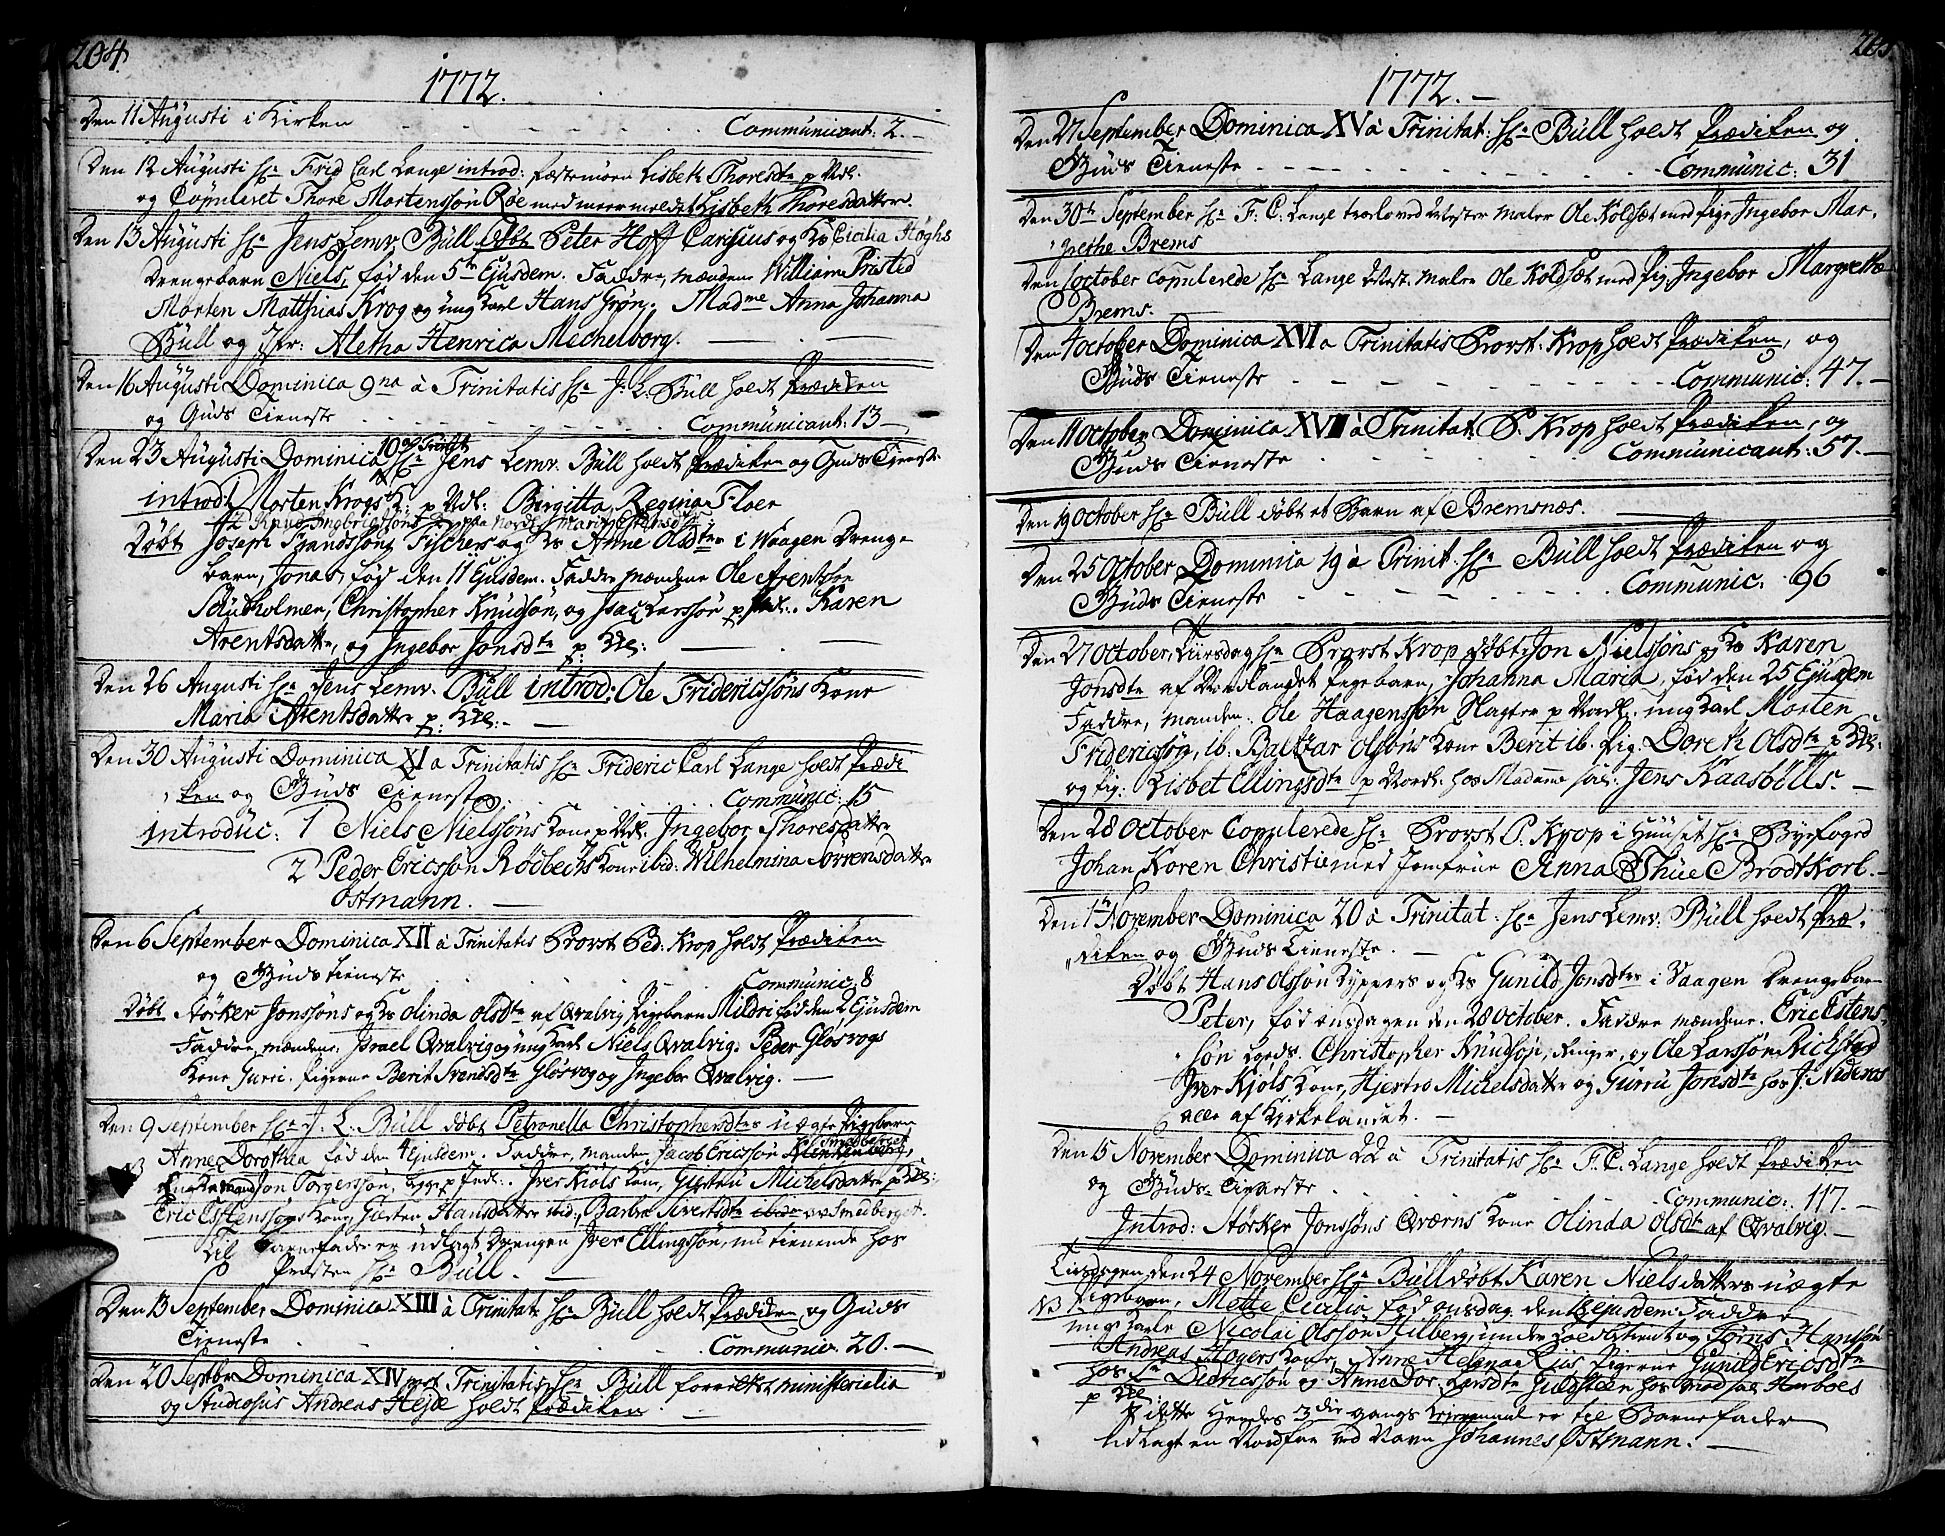 204.
1772.
Den 11 Augusti i Kirken Communicant: 2.
Den 12 Augusti Hr Frid Carl Lange introd: fæstemøen Lisbeth Thoresdtr p Ndl.
og Copuleret Thore Mortenssøn Røe med meermeldet Lisbeth Thoresdatter.
Den 13 Augusti Hr Jens Lemv. Büll døbt Peter Hoff Carisius og Ks Cicilia Høghs
Drengebarn Niels, fød den 5te Ejusdem. Faddre, mændene William Pristed
Morten Matthias Krog og ung Karl Hans Grøn. Madme Anna Johanna
Büll og Jfr: Aletha Henrica Mechelborg.
Den 16 Augusti Dominica 9na à Trinitatis Hr J. L. Büll holdt Prædiken
og Guds Tieneste Communicant: 13
Den 23 Augusti Dominica 10 Trinit Hr Jens Lemv. Büll holdt Prædiken og Guds Tieneste
introd: Morten Krogs K. p Ndl: Birgitta Regina Floer
Knud Ingbrigtsøns K. paa Nordl. Marit Hansdtr
Døbt Joseph Frandssøns Fischers og Ks Anne Olsdtr i Waagen Drenge-
barn, Jonas, fød den 11 Ejusdem. Faddre mændene Ole Arentsøn
Christopher Knudsøn, og Isac Larssøn p Ind:. Karen
Arentsdattr, og Ingebor Jonsdtr p: Kl:
Den 26 Augusti Hr Jens Lemv. Büll introd: Ole Fridericssøns Kone
Maria Arentsdattr p: Kl:
Den 30 Augusti Dominica XI à Trinitatis Hr Frideric Carl Lange holdt Prædi
ken og Guds Tieneste Communic: 15
introduc: 1 Niels Nielssøns Kone p Ndl. Ingebor Thoresdatter
2 Peder Ericssøn Rødbechs Kone ibid. Wilhelmina Sørrensdatter
Ostmann.
Den 6 September Dominica XII à Trinitatis Provst Ped: Krop holdt Prædiken
og Guds Tieneste Communic: 8
Døbt Størker Jonssøns og Ks Olinda Olsdtr af Qvalvig Pigebarn Mildri fød den 2 Ejusdem
Faddre, mændene Israel Qvalvig og ung Karl Niels Qvalvig. Peder Glosvogs
Kone Guri. Pigerne Berit Svendsdtr Glosvog og Ingebor Qvalvig.
Den 9 September Hr J. L. Büll døbt Petronella Christophersdtrs uægte Pigebarn
Smedberget
NB Anne Dorothea fød den 4 Ejusdem. Faddre, manden Jacob Ericssøn
Jon Torgerssøn, p Indl:. Iver Kiøls Kone, Giertru Michelsdattr p Kl:
Eric Estenssøns Kone Giertru Hansdatter ibid:, Barbra Sivertsdtr ibidem Smedberget.
Til Barnefader er udlagt Drengen Iver Ellingssøn, nu tienende hos
Præsten Hr Büll.
Den 13 September Dominica XIII à Trinitat: Hr Büll holdt Prædiken og Guds
Tieneste Communic. 20.
Den 20 Septbr Dominica XIV post Trinitatis Hr Büll forrettet ministerialia
og Studiosus Andreas Hejde holdt prædiken.
205
1772.
Den 27 September Dominica XV à Trinitat: Hr Büll holdt Prædiken og
Guds Tieneste Communic: 31
Den 30te September Hr F: C: Lange trolovede Mester maler Ole Koldsæt med pige Ingebor Mar-
grethe Brems
Den 1 October copulerede Hr Lange Mest. maler Ole Koldsæt med Pig. Ingebor Margrethe
Brems.
Den 4 October Dominica XVI à Trinitatis Provst Krop holdt Prædiken, og
Guds Tieneste Communic: 47.
Den 11 October Dominica XVII à Trinitat. P. Krop holdt Prædiken, og
Guds Tieneste Communicant: 57.
Den 19 October Hr Büll døbt et Barn af Bremsnæs.
Den 25 October Dominica 19 à Trinit. Hr Büll holdt Prædiken og
Guds Tieneste Communic: 96
Den 27 October, Tiirsdag Hr Provst Krop døbt Jon Nielssøns og Ks Karen
Jonsdtr af Nordlandet Pigebarn, Johanna Maria, fød den 25 Ejusdem
Faddre, manden: Ole Haagenssøn Slagter p Nordl. ung Karl Morten
Fridericssøn, ib. Baltzar Olssøns Kone Berit ib. Pig. Doreth Olsdtr p Kl:
og Pig: Lisbet Ellingsdtr p Nordl: hos Madame sal: Jens Kaasbølls.
Den 28 October Copulerede Hr Provst P. Krop i Huuset Hr Byefoged
Johan Koren Christie med Jomfrue Anna Thue Brodtkorb.
Den 1te November Dominica 20 à Trinitat: Hr Jens Lemv: Büll holdt Præ-
diken og Guds Tieneste.
Døbt Hans Olssøn Kyppers og Ks Gunild Jonsdtr i Vaagen Drengebarn
Peter, fød onsdagen den 28 October. Faddre mændene. Eric Estens-
søn Christopher Knudsøn, Ringer, og Ole Larssøn Richstad
Iver Kjøls Kone, Hjertro Michelsdattr og Gurru Jonsdtr hos J. Nideros
alle af Kirkelandet.
Den 15 November Dominica 22 à Trinitatis Hr F. C. Lange holdt Prædiken
og Guds Tieneste Communic: 117.
Introd: Størker Jonssøns Qværns Kone Olinda Olsdtr af Qvalvig.
Tiisdagen den 24 November Hr Büll døbt Karen Nielsdatters uægte
NB Pigebarn, Mette Cicilia fød onsdag den 18 ejusdem. Faddre
ung Karle Nicolai Olssøn Hilberg, under og Jørns Hanssøn
Andreas Høyers Kone, Anne Helena Riis pigerne Gunild Ericsdtr
hos Hr Didricssøn og Anne Dor. Larsdtr Guldsteen hos mad sal Harboes
p Kl:
I dette Hendes 3die gangs er til Barnefader
Udlagt en Nordfar ved Navn Johannes Østmann.